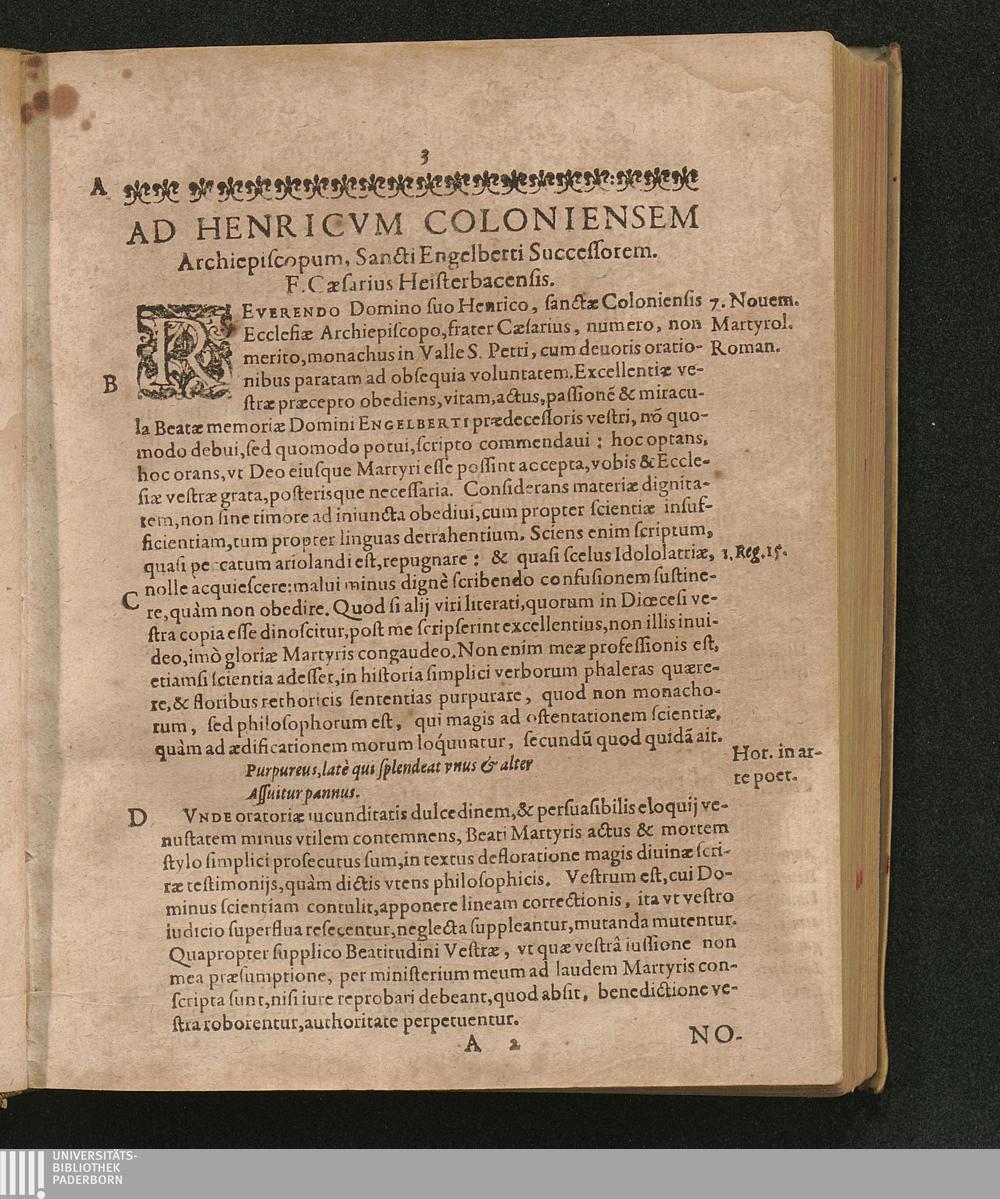 3
A
AD HENRICVM COLONIENSEM
Archiepiſcopum, Sancti Engelberti Succeſſorem.
F. Cæſarius Heiſterbacenſis.
REVERENDO Domino ſuo Henrico, ſanctæ Colonienſis 7. Nouem.
Eccleſiæ Archiepiſcopo, frater Cæſarius, numero, non Martyrol.
merito, monachus in Valle S. Petri, cum deuotis oratio- Roman.
B nibus paratam ad obſequia voluntatem. Excellentiæ ve-
ſtræ præcepto obediens, vitam, actus, paſſionē & miracu-
la Beatæ memoriæ Domini ENGELBERTI prædeceſſoris veſtri, nō quo-
modo debui, ſed quomodo potui, ſcripto commendaui : hoc optans,
hoc orans, vt Deo eiuſque Martyri eſſe poſſint accepta, vobis & Eccle-
ſiæ veſtræ grata, poſterisque neceſſaria. Conſiderans materiæ dignita-
tem, non ſine timore ad iniuncta obediui, cum propter ſcientiæ inſuf-
ficientiam, tum propter linguas detrahentium. Sciens enim ſcriptum,
quaſi peccatum ariolandi eſt, repugnare : & quaſi ſcelus Idololatriæ, 1. Reg. 15.
nolle acquieſcere: malui minus dignè ſcribendo confuſionem ſuſtine-
C re, quàm non obedire. Quod ſi alij viri literati, quorum in Diœceſi ve-
ſtra copia eſſe dinoſcitur, poſt me ſcripſerint excellentius, non illis inui-
deo, imò gloriæ Martyris congaudeo. Non enim meæ profeſſionis eſt,
etiamſi ſcientia adeſſet, in hiſtoria ſimplici verborum phaleras quære-
re, & floribus rethoricis ſententias purpurare, quod non monacho-
rum, ſed philoſophorum eſt, qui magis ad oſtentationem ſcientiæ,
quàm ad ædificationem morum loquuntur, ſecundū quod quidā ait.
Purpureus, latè qui ſplendeat vnus & alter Hor. in ar-
Aſſuitur pannus. te poet.
D VNDE oratoriæ iucunditatis dulcedinem, & perſuaſibilis eloquij ve-
nuſtatem minus vtilem contemnens, Beati Martyris actus & mortem
ſtylo ſimplici proſecutus ſum, in textus defloratione magis diuinæ ſcri-
ræ teſtimonijs, quàm dictis vtens philoſophicis. Veſtrum eſt, cui Do-
minus ſcientiam contulit, apponere lineam correctionis, ita vt veſtro
iudicio ſuperflua reſecentur, neglecta ſuppleantur, mutanda mutentur.
Quapropter ſupplico Beatitudini Veſtræ, vt quæ veſtrâ iuſſione non
mea præſumptione, per miniſterium meum ad laudem Martyris con-
ſcripta ſunt, niſi iure reprobari debeant, quod abſit, benedictione ve-
ſtra roborentur, authoritate perpetuentur.
A 2 NO-
UNIVERSITÄTS-
BIBLIOTHEK
PADERBORN